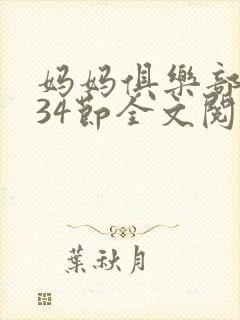 妈妈俱樂部
34節全文閱
葉秋月